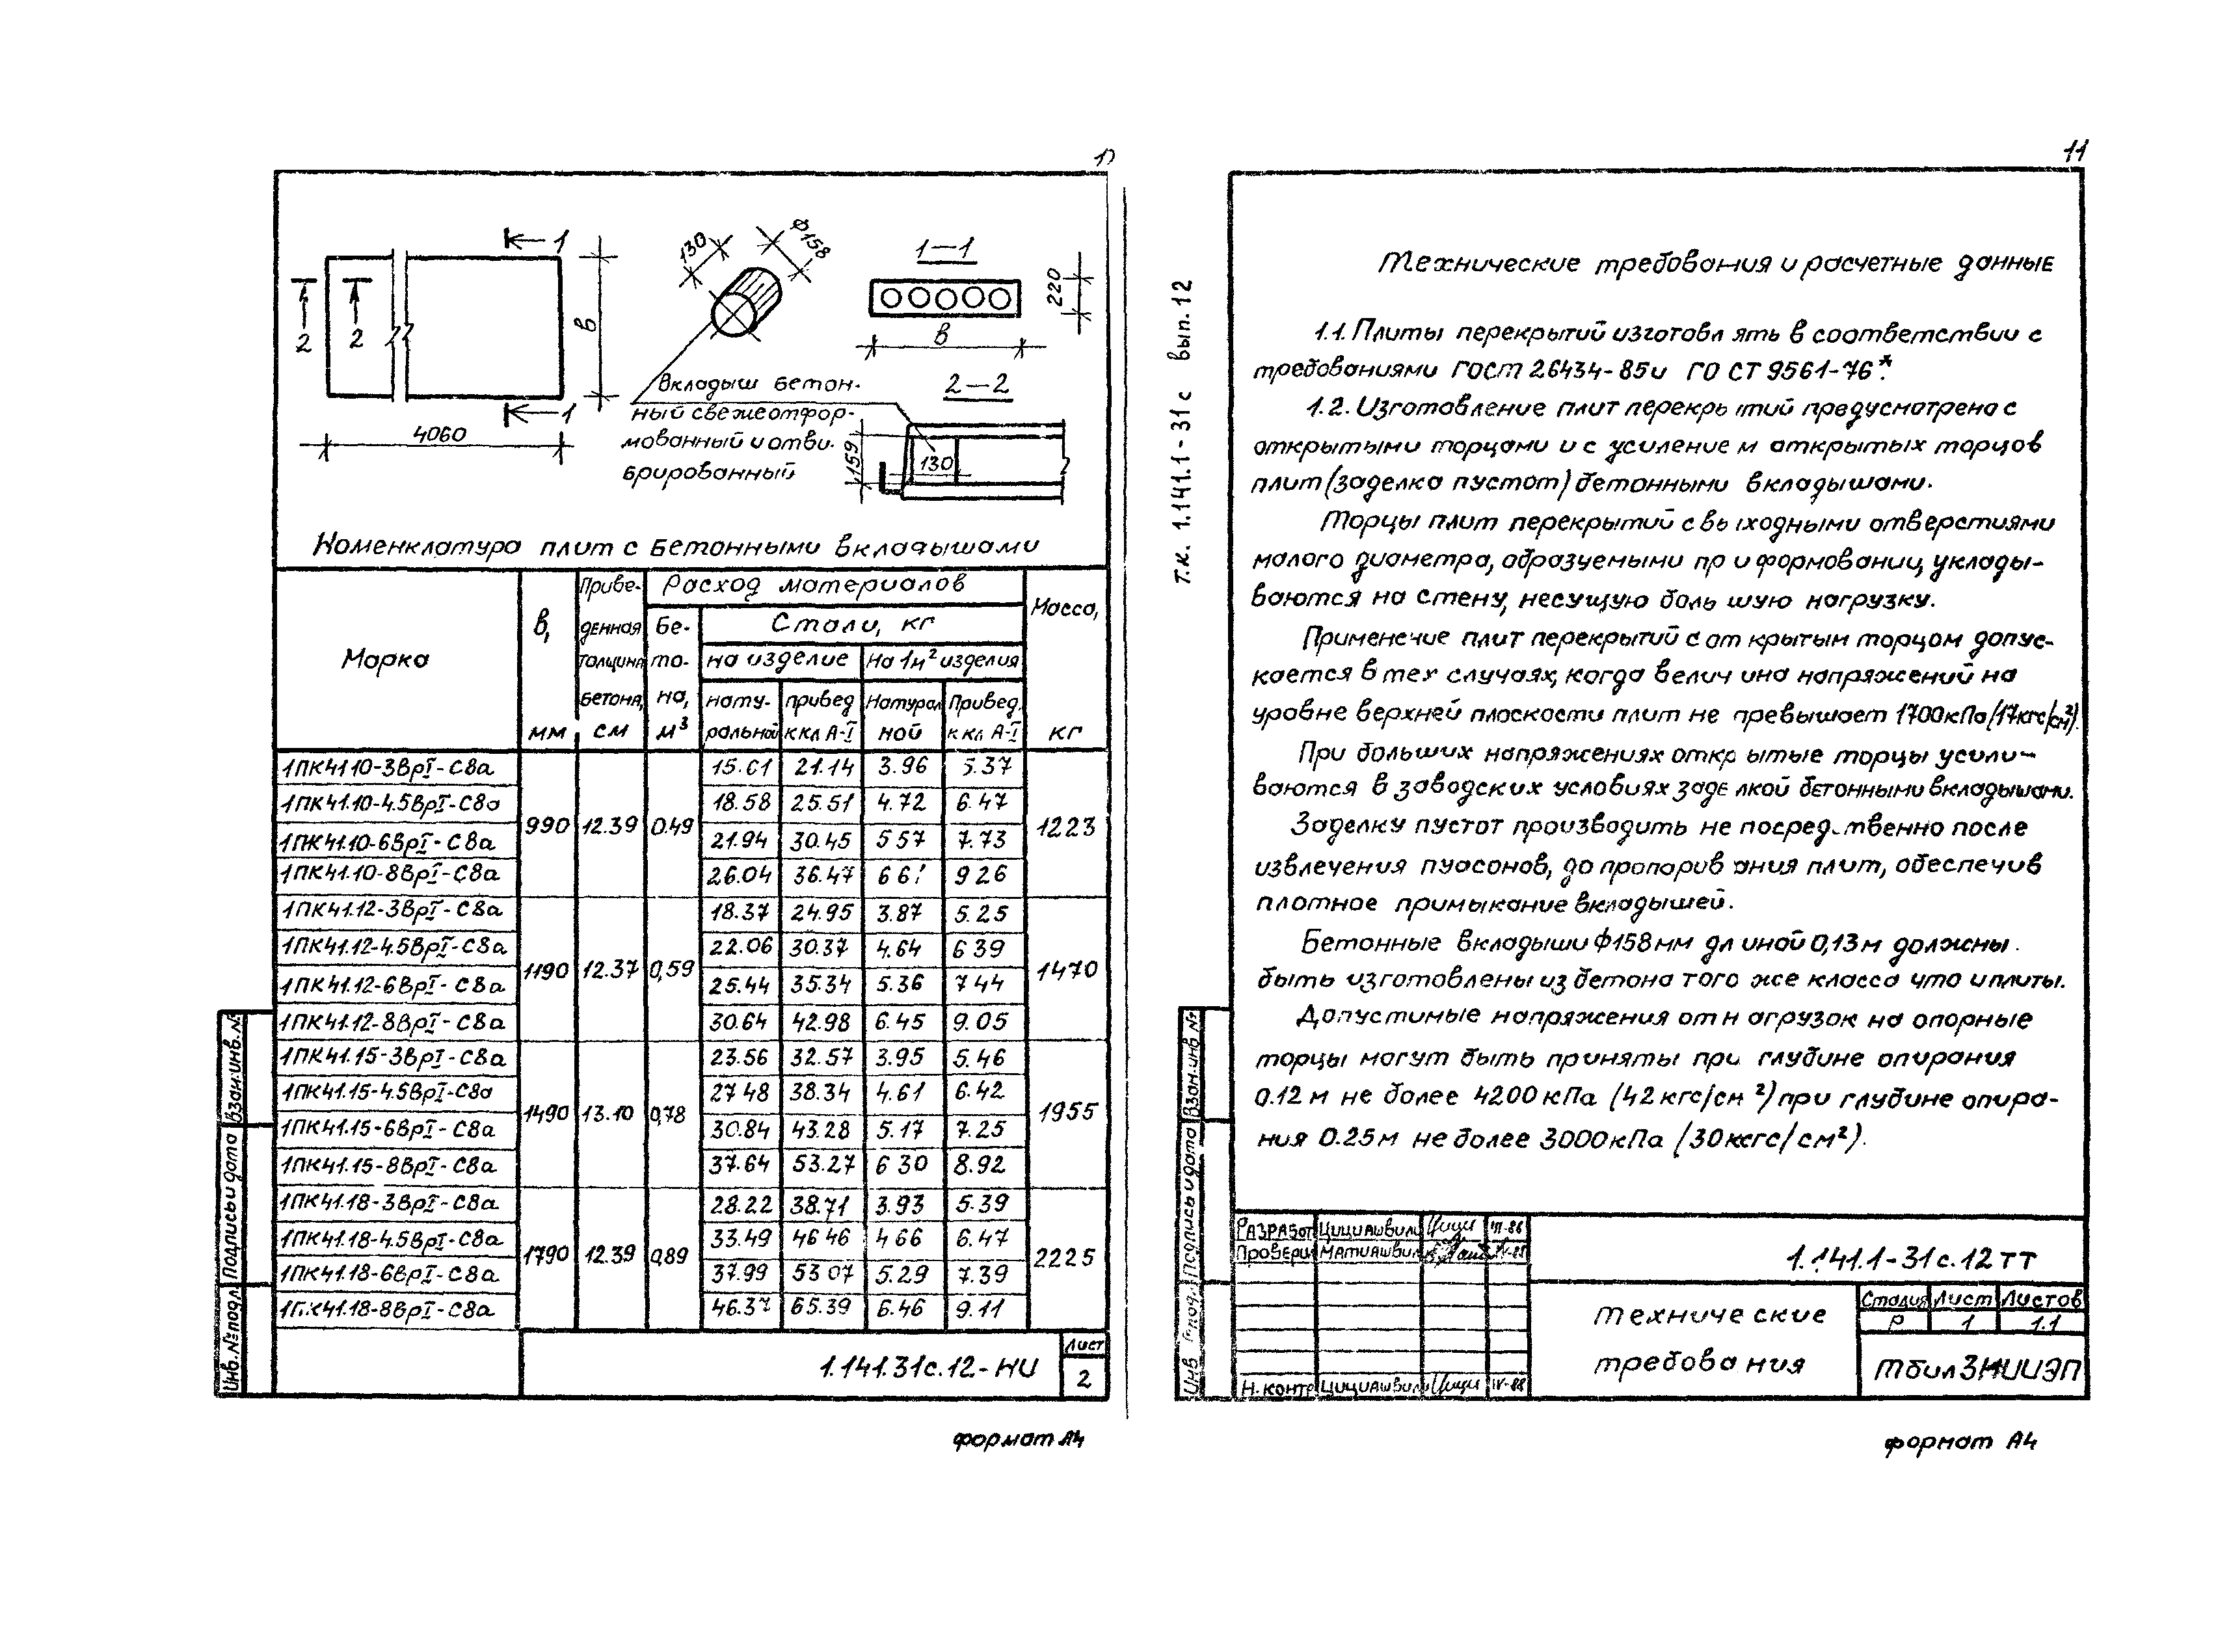 1
1
В
4060
2
2
130
ф158
1—1
220
В
Вкладыш бетон-
ный свежеотфор-
мованный и отви-
брированный
2—2
159
130
Номенклатура плит с бетонными вкладышами
Марка
В, мм
Приве-
денная
толщина
бетона,
см
Расход материалов
Бе-
то-
на,
м³
Стали, кг
на изделие
На 1м² изделия
нату-
ральной
привед
к кл А-I
Натурал
ной
Привед.
к кл А-I
Масса,
кг
1ПК41 10-3ВрI-С8а 990 12.39 0.49 15.61 21.14 3.96 5.37 1223
1ПК41.10-4.5ВрI-С8а 18.58 25.51 4.72 6.47
1ПК41.10-6ВрI-С8а 21.94 30.45 5 57 7.73
1ПК41.10-8ВрI-С8а 26.04 36.47 6 61 9 26
1ПК41.12-3ВрI-С8а 1190 12.37 0,59 18.37 24.95 3.87 5.25 1470
1ПК41.12-4.5ВрI-С8а 22.06 30.37 4.64 6 39
1ПК41.12-6ВрI-С8а 25.44 35.34 5.36 7 44
1ПК41.12-8ВрI-С8а 30.64 42.98 6.45 9.05
1ПК41.15-3ВрI-С8а 1490 13.10 0,78 23.56 32.57 3.95 5.46 1955
1ПК41.15-4.5ВрI-С8а 27 48 38.34 4.61 6.42
1ПК41.15-6ВрI-С8а 30.84 43.28 5.17 7.25
1ПК41.15-8ВрI-С8а 37.64 53.27 6 30 8.92
1ПК41.18-3ВрI-С8а 1790 12.39 0,89 28.22 38.71 3.93 5.39 2225
1ПК41.18-4.5ВрI-С8а 33.49 46 46 4 66 6.47
1ПК41.18-6ВрI-С8а 37.99 53 07 5.29 7.39
1ПК41.18-8ВрI-С8а 46.37 65.39 6.46 9.11
1.141.31с.12-НИ
Лист
2
Взам.инв.№
Подпись и дата
Инв.№ подл
формат А4
11
т.к. 1.141.1-31с вып. 12
Технические требования и расчетные данные
1.1. Плиты перекрытий изготовлять в соответствии с
требованиями ГОСТ 26434-85 и ГОСТ 9561-76*.
1.2. Изготовление плит перекрытий предусмотрена с
открытыми торцами и с усилением открытых торцов
плит (заделка пустот) бетонными вкладышами.
Торцы плит перекрытий с выходными отверстиями
малого диаметра, образуемыми при формовании, уклады-
ваются на стену, несущую большую нагрузку.
Применение плит перекрытий с открытым торцом допус-
кается в тех случаях, когда величина напряжений на
уровне верхней плоскости плит не превышает 1700кПа (17кгс/см²).
При больших напряжениях открытые торцы усили-
ваются в заводских условиях заделкой бетонными вкладышами.
Заделку пустот производить непосредственно после
извлечения пуасонов, до пропаривания плит, обеспечив
плотное примыкание вкладышей.
Бетонные вкладыши ф158мм длиной 0,13м должны
быть изготовлены из бетона того же класса что и плиты.
Допустимые напряжения от нагрузок на опорные
торцы могут быть приняты при глубине опирания
0.12 м не более 4200 кПа (42 кгс/см²) при глубине опира-
ния 0.25м не более 3000кПа (30кгс/см²).
Взам.инв №
Подпись и дата
Инв подл
Разработ Цициашвили Цици
Провери Матиашвили
Н.контр Цициашвили Цици IV-88
1.141.1-31с.12ТТ
Технические
требования
Стадия Лист Листов
Р 1 1.1
ТбилЗНИИЭП
формат А4